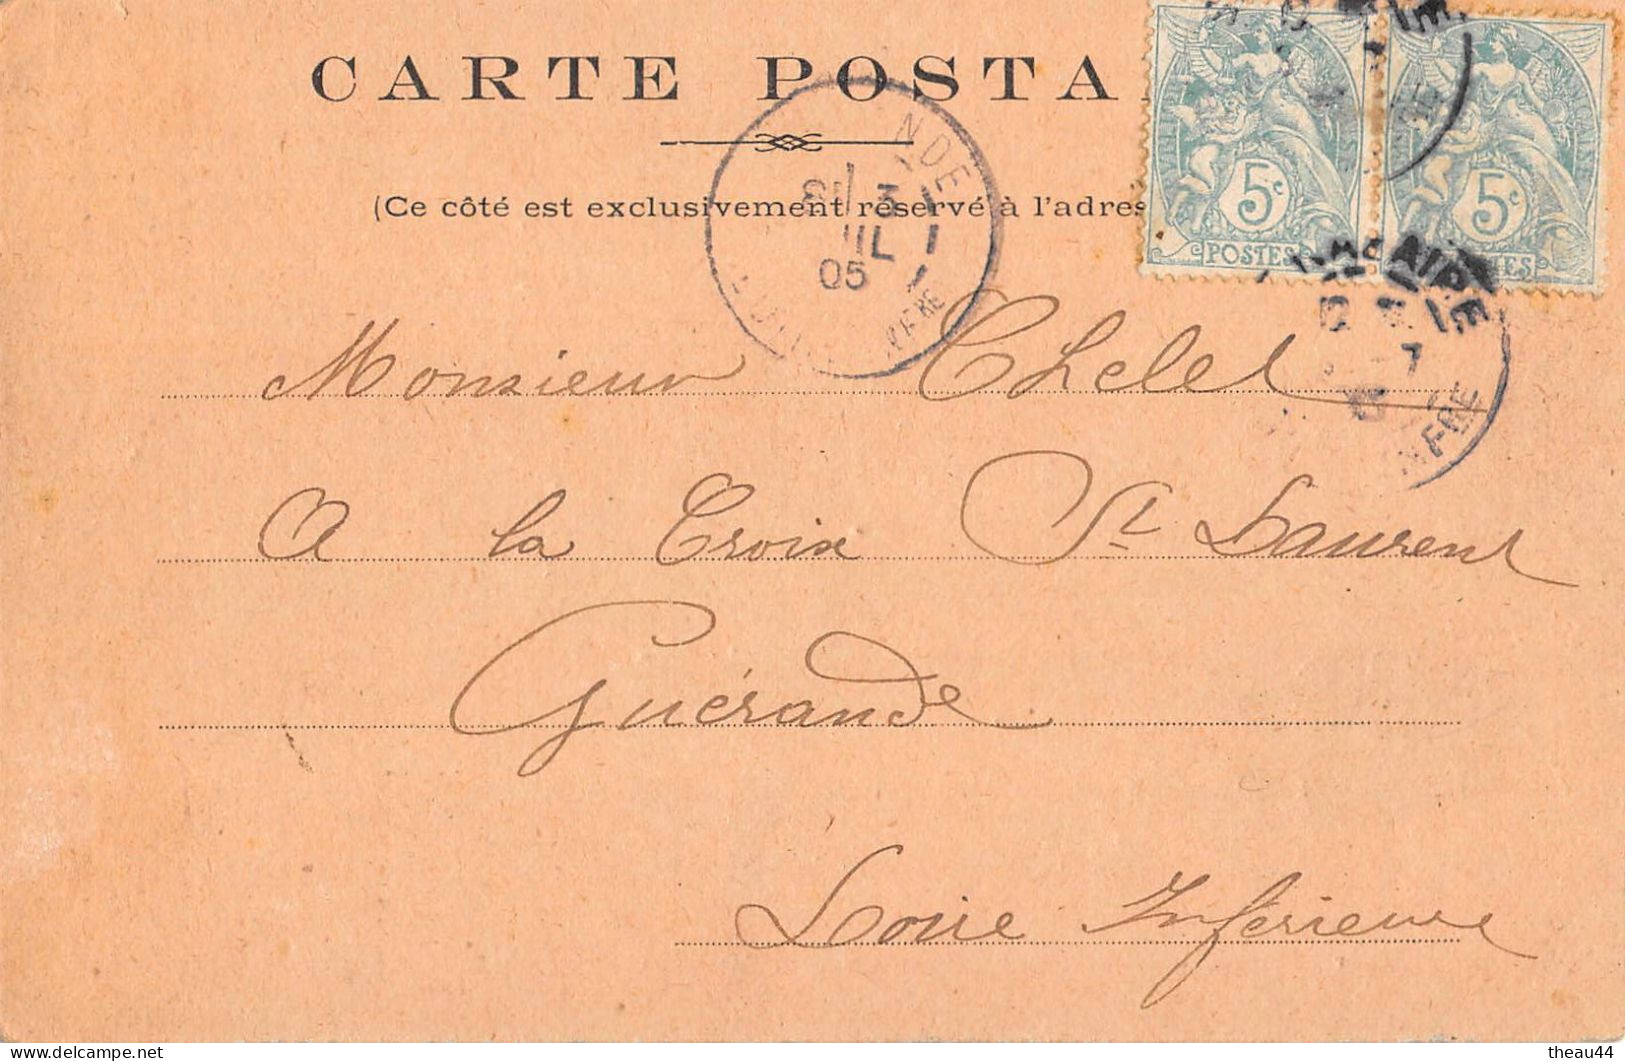 CARTE POSTA
(Ce côté est exclusivement réservé à l'adres
5c
POSTES
5c
NDE
3
05
RE
AIRE
7
INFRE
Monsieur Chelet
A la Croix St Laurent
Guérande
Loire Inférieure
delcampe.net
theau44